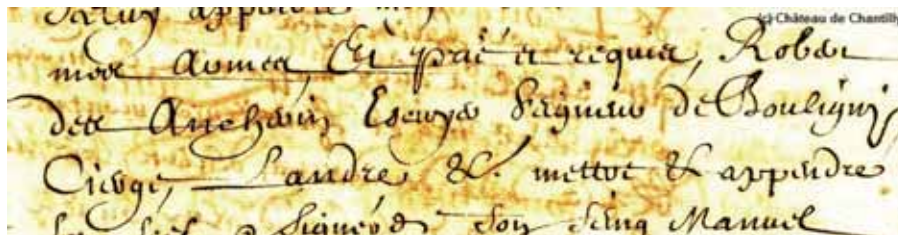 appendre
(c) Château de Chantilly
mes Armes, Et prié et requis, Robert
des Anchein Escuyer Seigneur de Bouligny
Cierge, Landre &. mettre & appendre
Signé de son seing Manuel